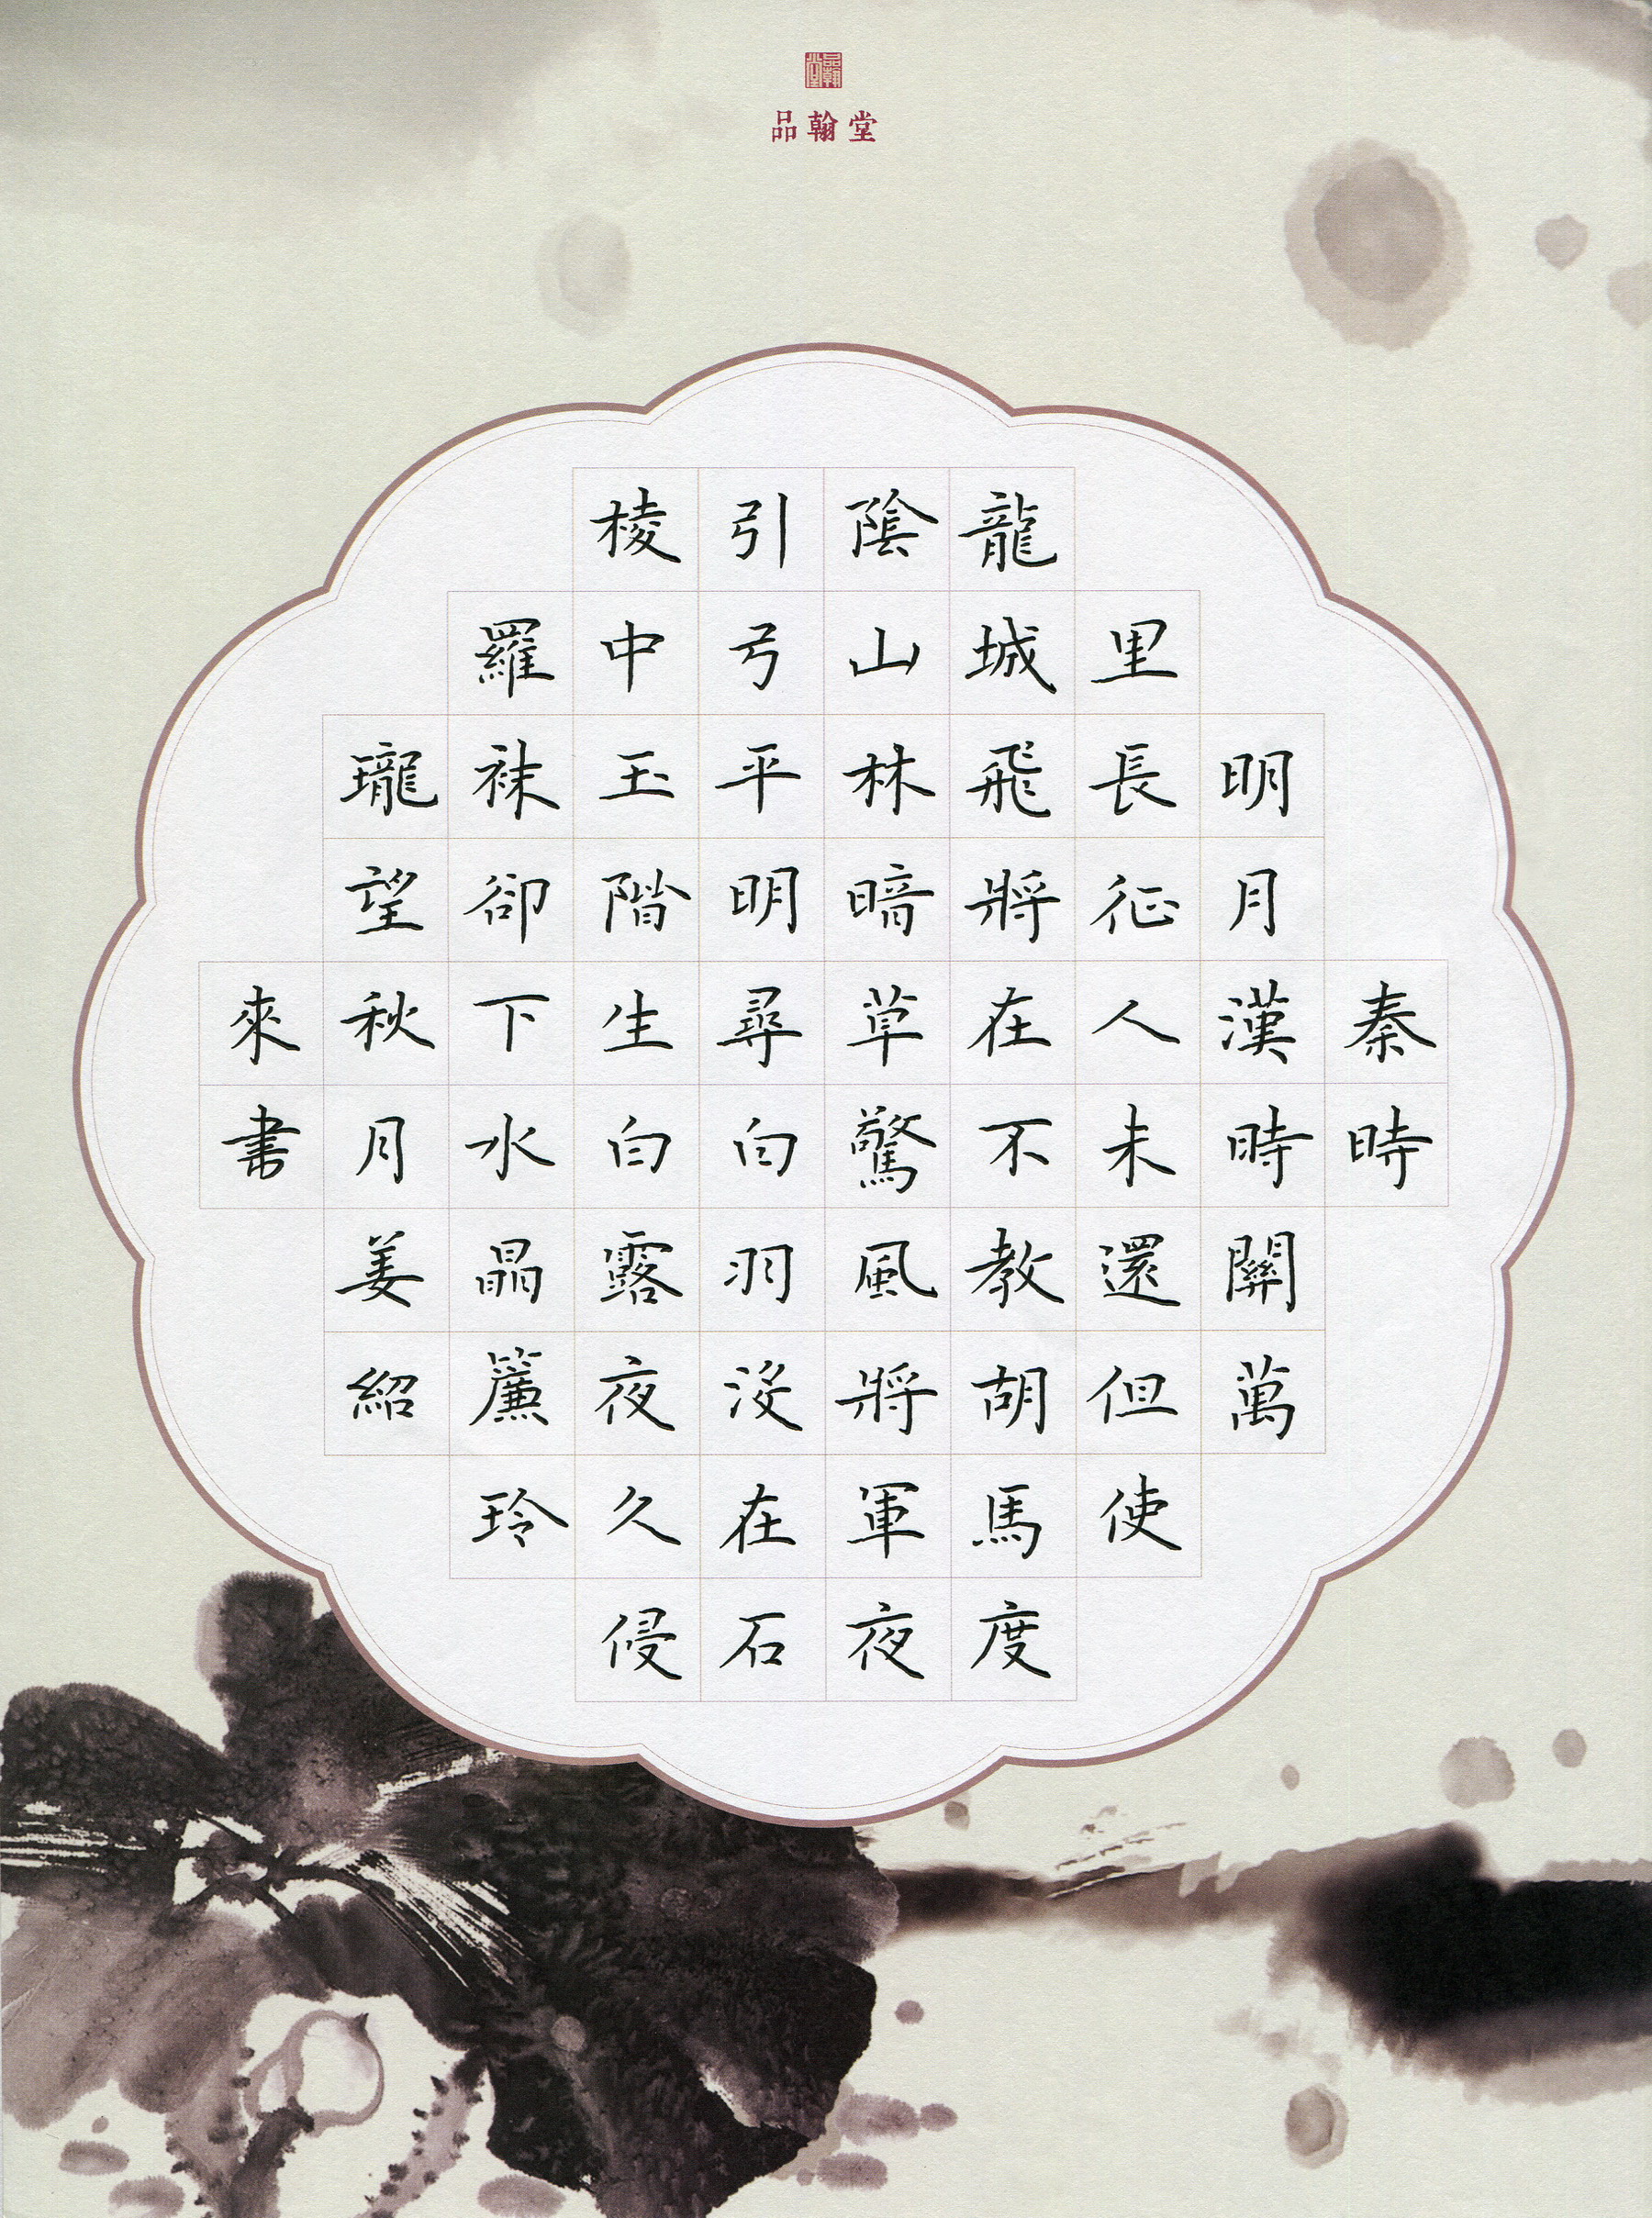 品翰堂
品翰堂
秦時
明月漢時關萬
里長征人未還但使
龍城飛將在不教胡馬度
陰山林暗草驚風將軍夜
引弓平明尋白羽没在石
棱中玉階生白露夜久侵
羅袜卻下水晶簾玲
瓏望秋月姜紹
來書